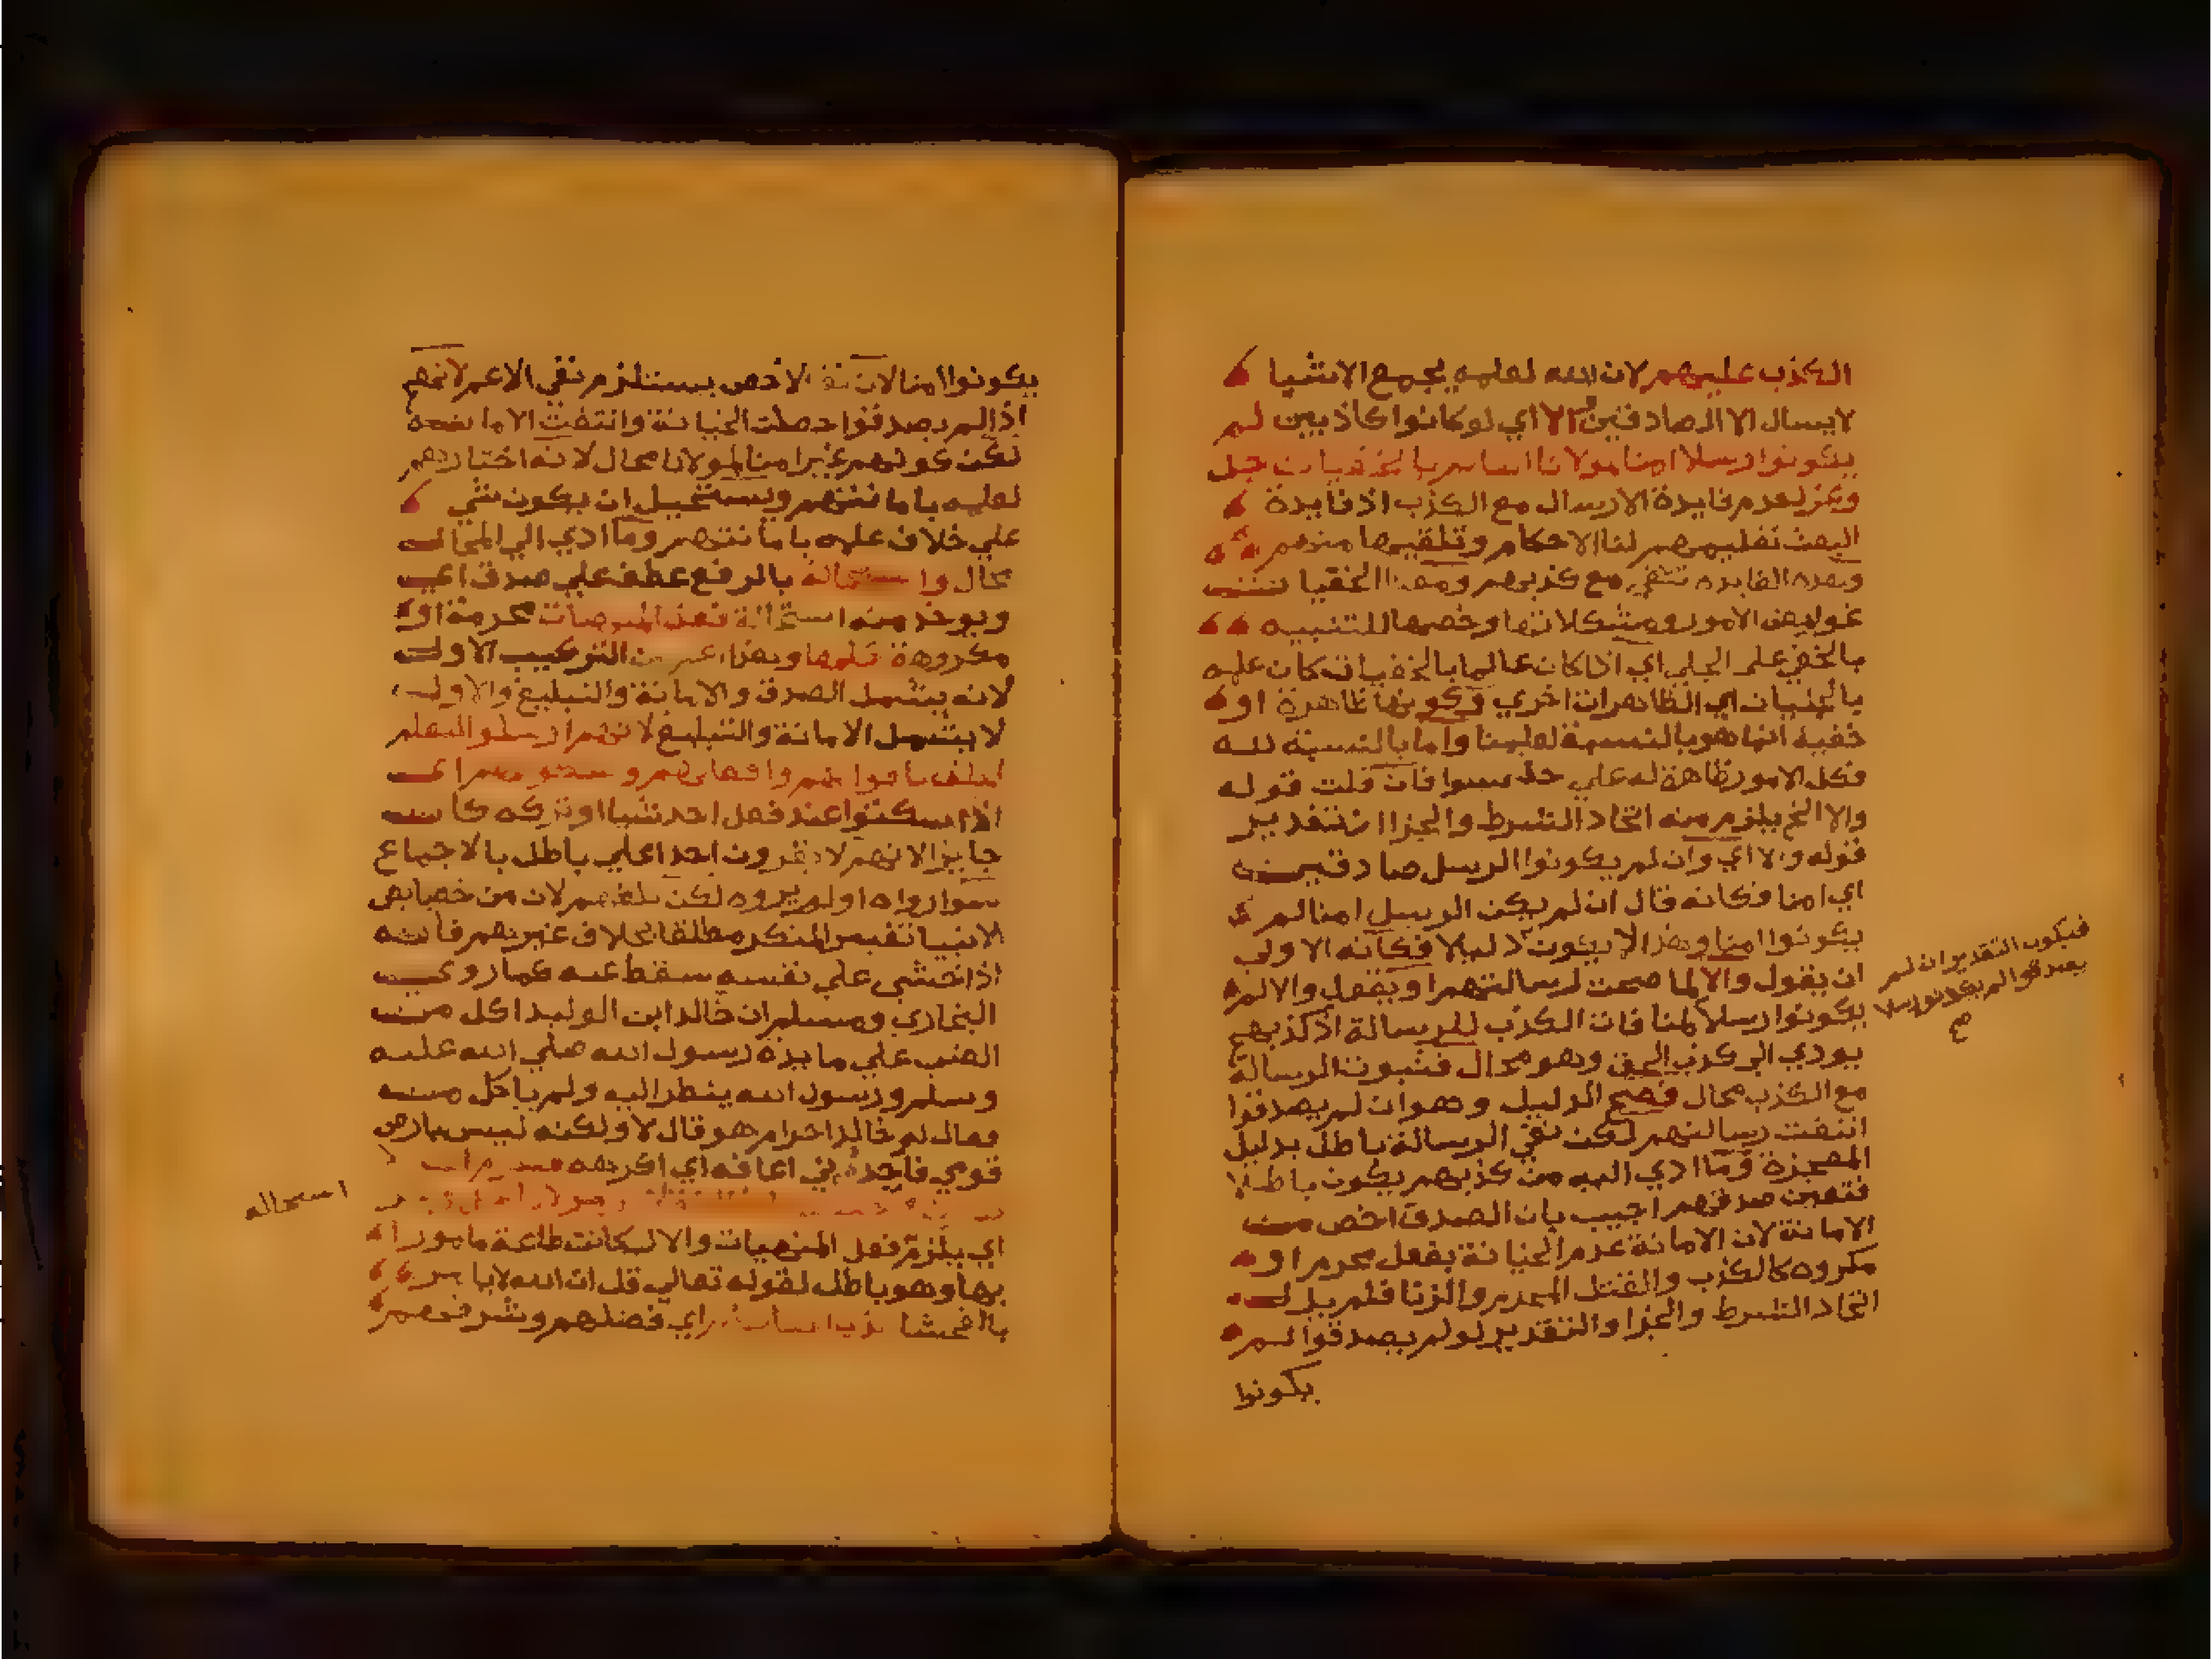 الكذب عليهم لان الله لعلمه بجميع الاشيا
لا يسال الا الصادقين والا اي لو كانوا كاذبين لم
يكونوا رسلا امنا لمولانا العالم بالخفيات جل
وعز لعدم فايدة الارسال مع الكذب اذ فايدة
البعث تعليمهم لنا الاحكام وتلقيها منهم
وهذه الفايدة تنتفي مع كذبهم ومعنا الخفيا
غوامض الامور ومشكلاتها وخصها للتنبيه
بالخفي على الجلي اي اذا كان عالما بالخفيات كان علمه
بالجليات اي الظاهرات احري وكونها ظاهرة او
خفية انما هو بالنسبة لعلمنا واما بالنسبة لله
فكل الامور ظاهرة له علي حد سوا فان قلت قوله
والا الخ يلزم منه اتحاد الشرط والجزا اذ تقدير
قوله والا اي وان لم يكونوا الرسل صادقين
اي امنا فكانه قال ان لم يكن الرسل امنا لم
يكونوا امنا وهذا لا يكون دليلا فكانه الاولي
ان يقول والا لما صحت رسالتهم او يقول والا لم
يكونوا رسلا لمنافات الكذب للرسالة اذ كذبهم
يودي الي كذب الحق وهو محال فثبوت الرسالة
مع الكذب محال فصح الدليل وهو ان لم يصدقوا
انتفت رسالتهم لكن نفي الرسالة باطل بدليل
المعجزة وما ادي اليه من كذبهم يكون باطلا
فتعين صدقهم اجيب بان الصدق اخص من
الامانة لان الامانة عدم الخيانة بفعل محرم او
مكروه كالكذب والقتل المحرم والزنا فلم يلزم
اتحاد الشرط والجزا والتقدير لو لم يصدقوا لم
يكونوا
فيكون التقدير ان لم
يصدقوا لم يكونوا رسلا
صح
يكونوا امنا لان نفي الاخص يستلزم نفي الاعم لانهم
اذا لم يصدقوا حصلت الخيانة وانتفت الامانة
لكن كونهم غير امنا لمولانا محال لانه اختارهم
لعلمه بامانتهم ويستحيل ان يكون شي
علي خلاف علمه بامانتهم وما ادي الي المحال
محال واستحالة بالرفع عطف علي صدق اي
ويوخذ منه استحالة فعل المنهيات محرمة او
مكروهة كلها وهذا اعم من التركيب الاول
لانه يشمل الصدق والامانة والتبليغ والاول
لا يشمل الامانة والتبليغ لانهم ارسلوا ليعلموا
الخلق باقوالهم وافعالهم وسكوتهم اي
اذا سكتوا عند فعل احد شيا او تركه كان
جايزا لانهم لا يقرون احدا علي باطل بالاجماع
سوا رواه او لم يروه لكن بلغهم لان من خصايص
الانبيا تغيير المنكر مطلقا بخلاف غيرهم فانه
اذا خشي علي نفسه سقط عنه كما روي
البخاري ومسلم ان خالد ابن الوليد اكل من
الضب علي مايدة رسول الله صلي الله عليه
وسلم ورسول الله ينظر اليه ولم ياكل منه
فقال له خالد احرام هو قال لا ولكنه ليس بارض
قومي فاجدني اعافه اي اكرهه
استحاله
اي يلزم فعل المنهيات والا لكانت طاعة مامورا
بها وهو باطل لقوله تعالي قل ان الله لا يامر
بالفحشا اي فضلهم وشرفهم